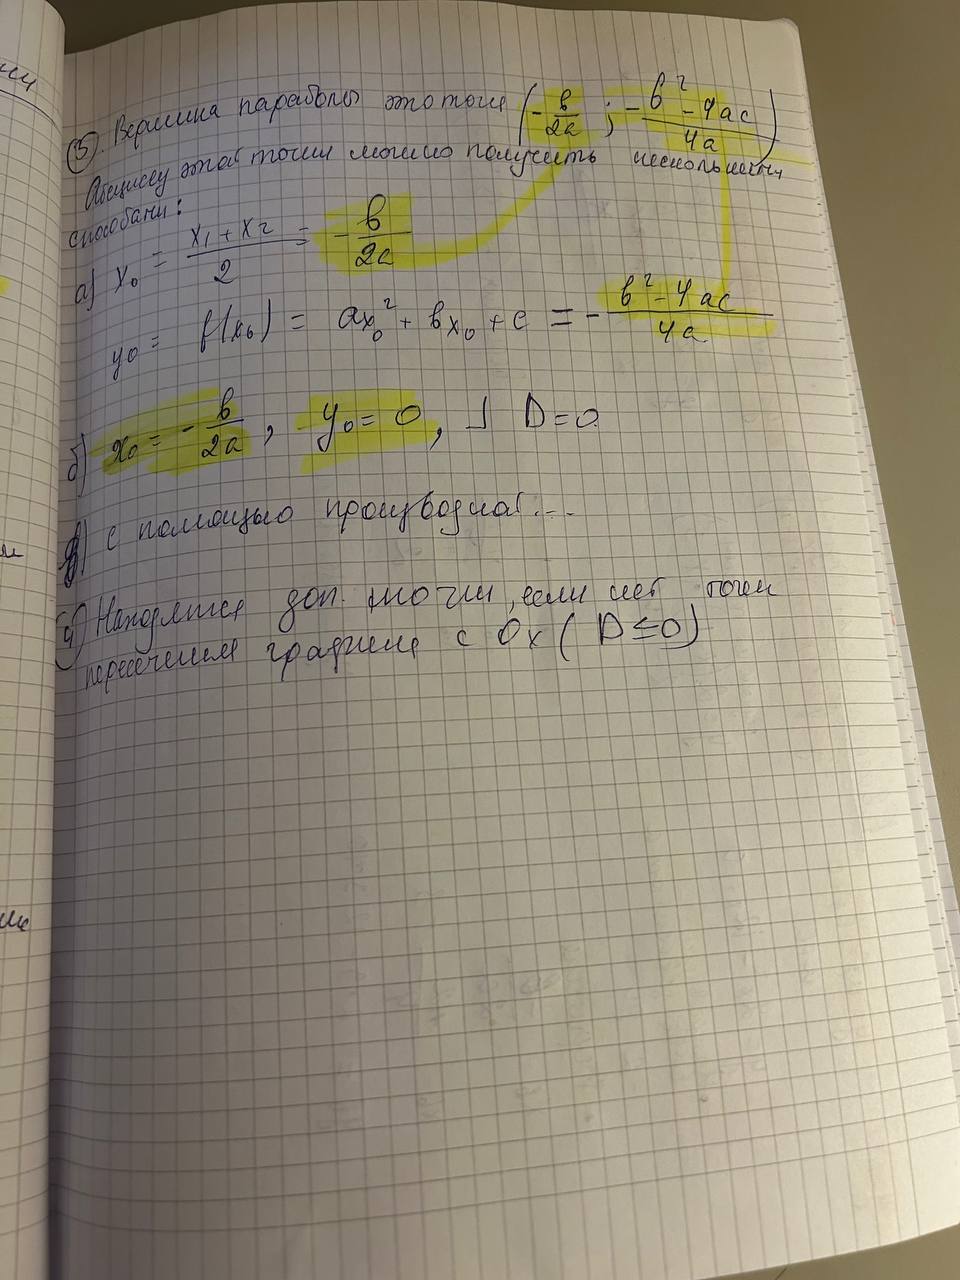 (3). Вершина параболы это точка (-в/2а ; -в²-4ас/4а)
Абсциссу этой точки можно получить несколькими
способами:
а) x₀ = x₁+x₂/2 = -в/2а
y₀ = f(x₀) = ax₀² + вx₀ + c = -в²-4ас/4а
б) x₀ = -в/2а, y₀ = 0, ⅃ D=0
в) с помощью производной...
(4) Находятся доп. точки, если нет точек
пересечения графика с Ox ( D≤0)